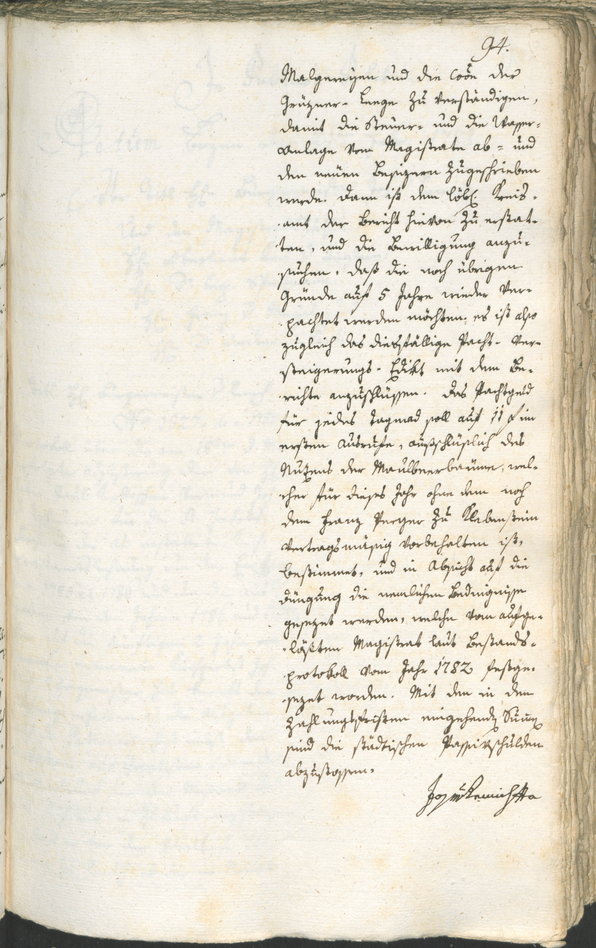 94.
Malgreyen und die Cöon der
Grüzner-Lenge zu verständigen,
damit die Steuer- und die Wasser-
Anlage vom Magistrate ab- und
den neuen Besizern zugeschrieben
werde. Dann ist dem Löbl. Kreis-
amt der Bericht hievon zu erstat-
ten, und die Bewilligung anzu-
suchen, daß die noch übrigen
Gründe auf 5 Jahre wieder ver-
pachtet werden möchten; es ist also
zugleich das diesfällige Pacht-Ver-
steigerungs-Edikt mit dem Be-
richte anzuschlüssen. Das Pachtgeld
für jedes Tagmad soll auf 11 f im
ersten Ausrufe, ausschlüslich des
Nuzens der Maulbeerbäume, wel-
cher für dieses Jahr ohne dem noch
dem Franz Perger zu Klebenstein
vertragsmäsig vorbehalten ist,
bestimmet, und in Absicht auf die
Düngung die nemlichen Bedingnisse
gesezet werden, welche vom aufge-
lößten Magistrat laut Bestands-
protokoll vom Jahr 1782 festge-
sezet worden. Mit den in den
Zahlungsfristen eingehenden
sind die städtischen Passivschulden
abzustossen.